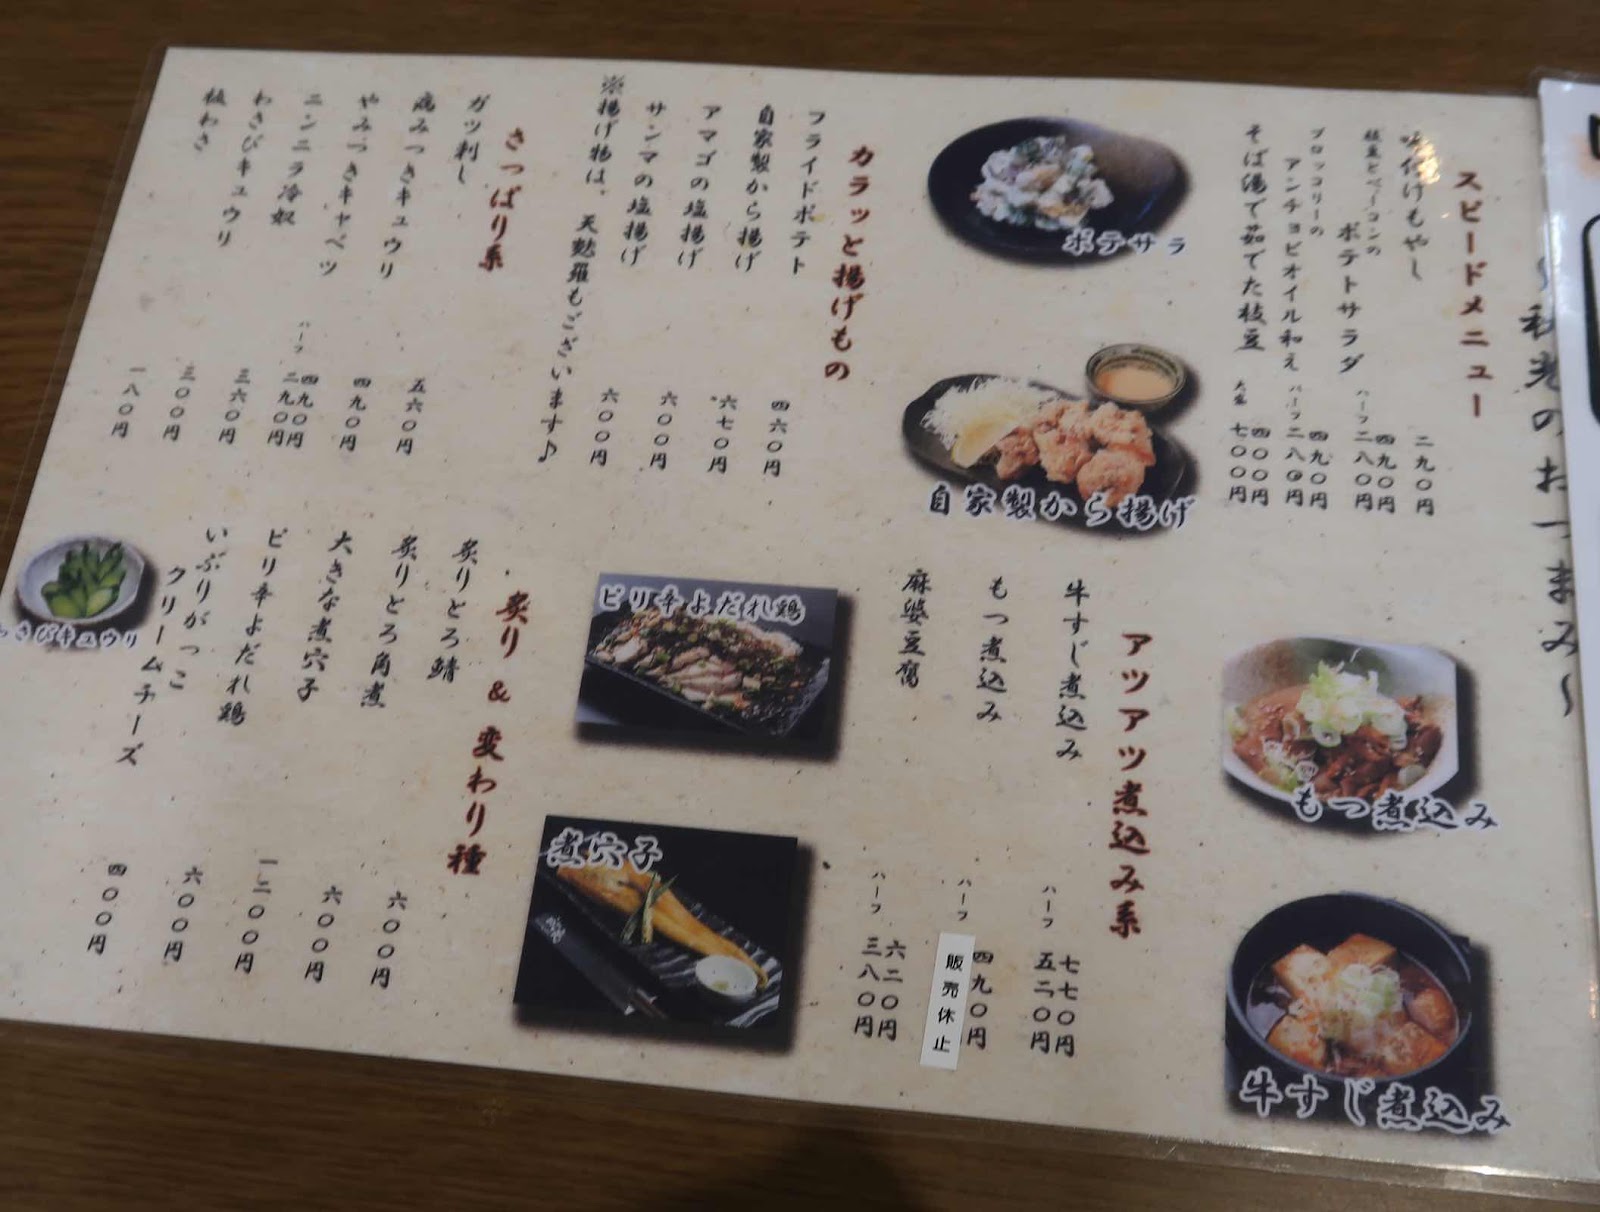 スピードメニュー
味付けもやし
二九〇円
枝豆とベーコンの
ポテトサラダ
四九〇円
ハーフ 二八〇円
ブロッコリーの
アンチョビオイル和え
四九〇円
ハーフ 二八〇円
そば湯で茹でた枝豆
四〇〇円
大盛 七〇〇円
ポテサラ
自家製から揚げ
カラッと揚げもの
フライドポテト
四六〇円
自家製から揚げ
六七〇円
アマゴの塩揚げ
六〇〇円
サンマの塩揚げ
六〇〇円
※揚げ物は、天麩羅もございます♪
さっぱり系
ガツ刺し
五六〇円
病みつきキュウリ
四九〇円
やみつきキャベツ
四九〇円
ハーフ 二九〇円
ニンニラ冷奴
三六〇円
わさびキュウリ
三〇〇円
板わさ
一八〇円
もつ煮込み
牛すじ煮込み
アツアツ煮込み系
牛すじ煮込み
七七〇円
ハーフ 五二〇円
もつ煮込み
四九〇円
ハーフ
販売休止
麻婆豆腐
六二〇円
ハーフ 三八〇円
ピリ辛よだれ鶏
煮穴子
炙り & 変わり種
炙りとろ鯖
六〇〇円
炙りとろ角煮
六〇〇円
大きな煮穴子
一二〇〇円
ピリ辛よだれ鶏
六〇〇円
いぶりがっこ
クリームチーズ
四〇〇円
さびキュウリ